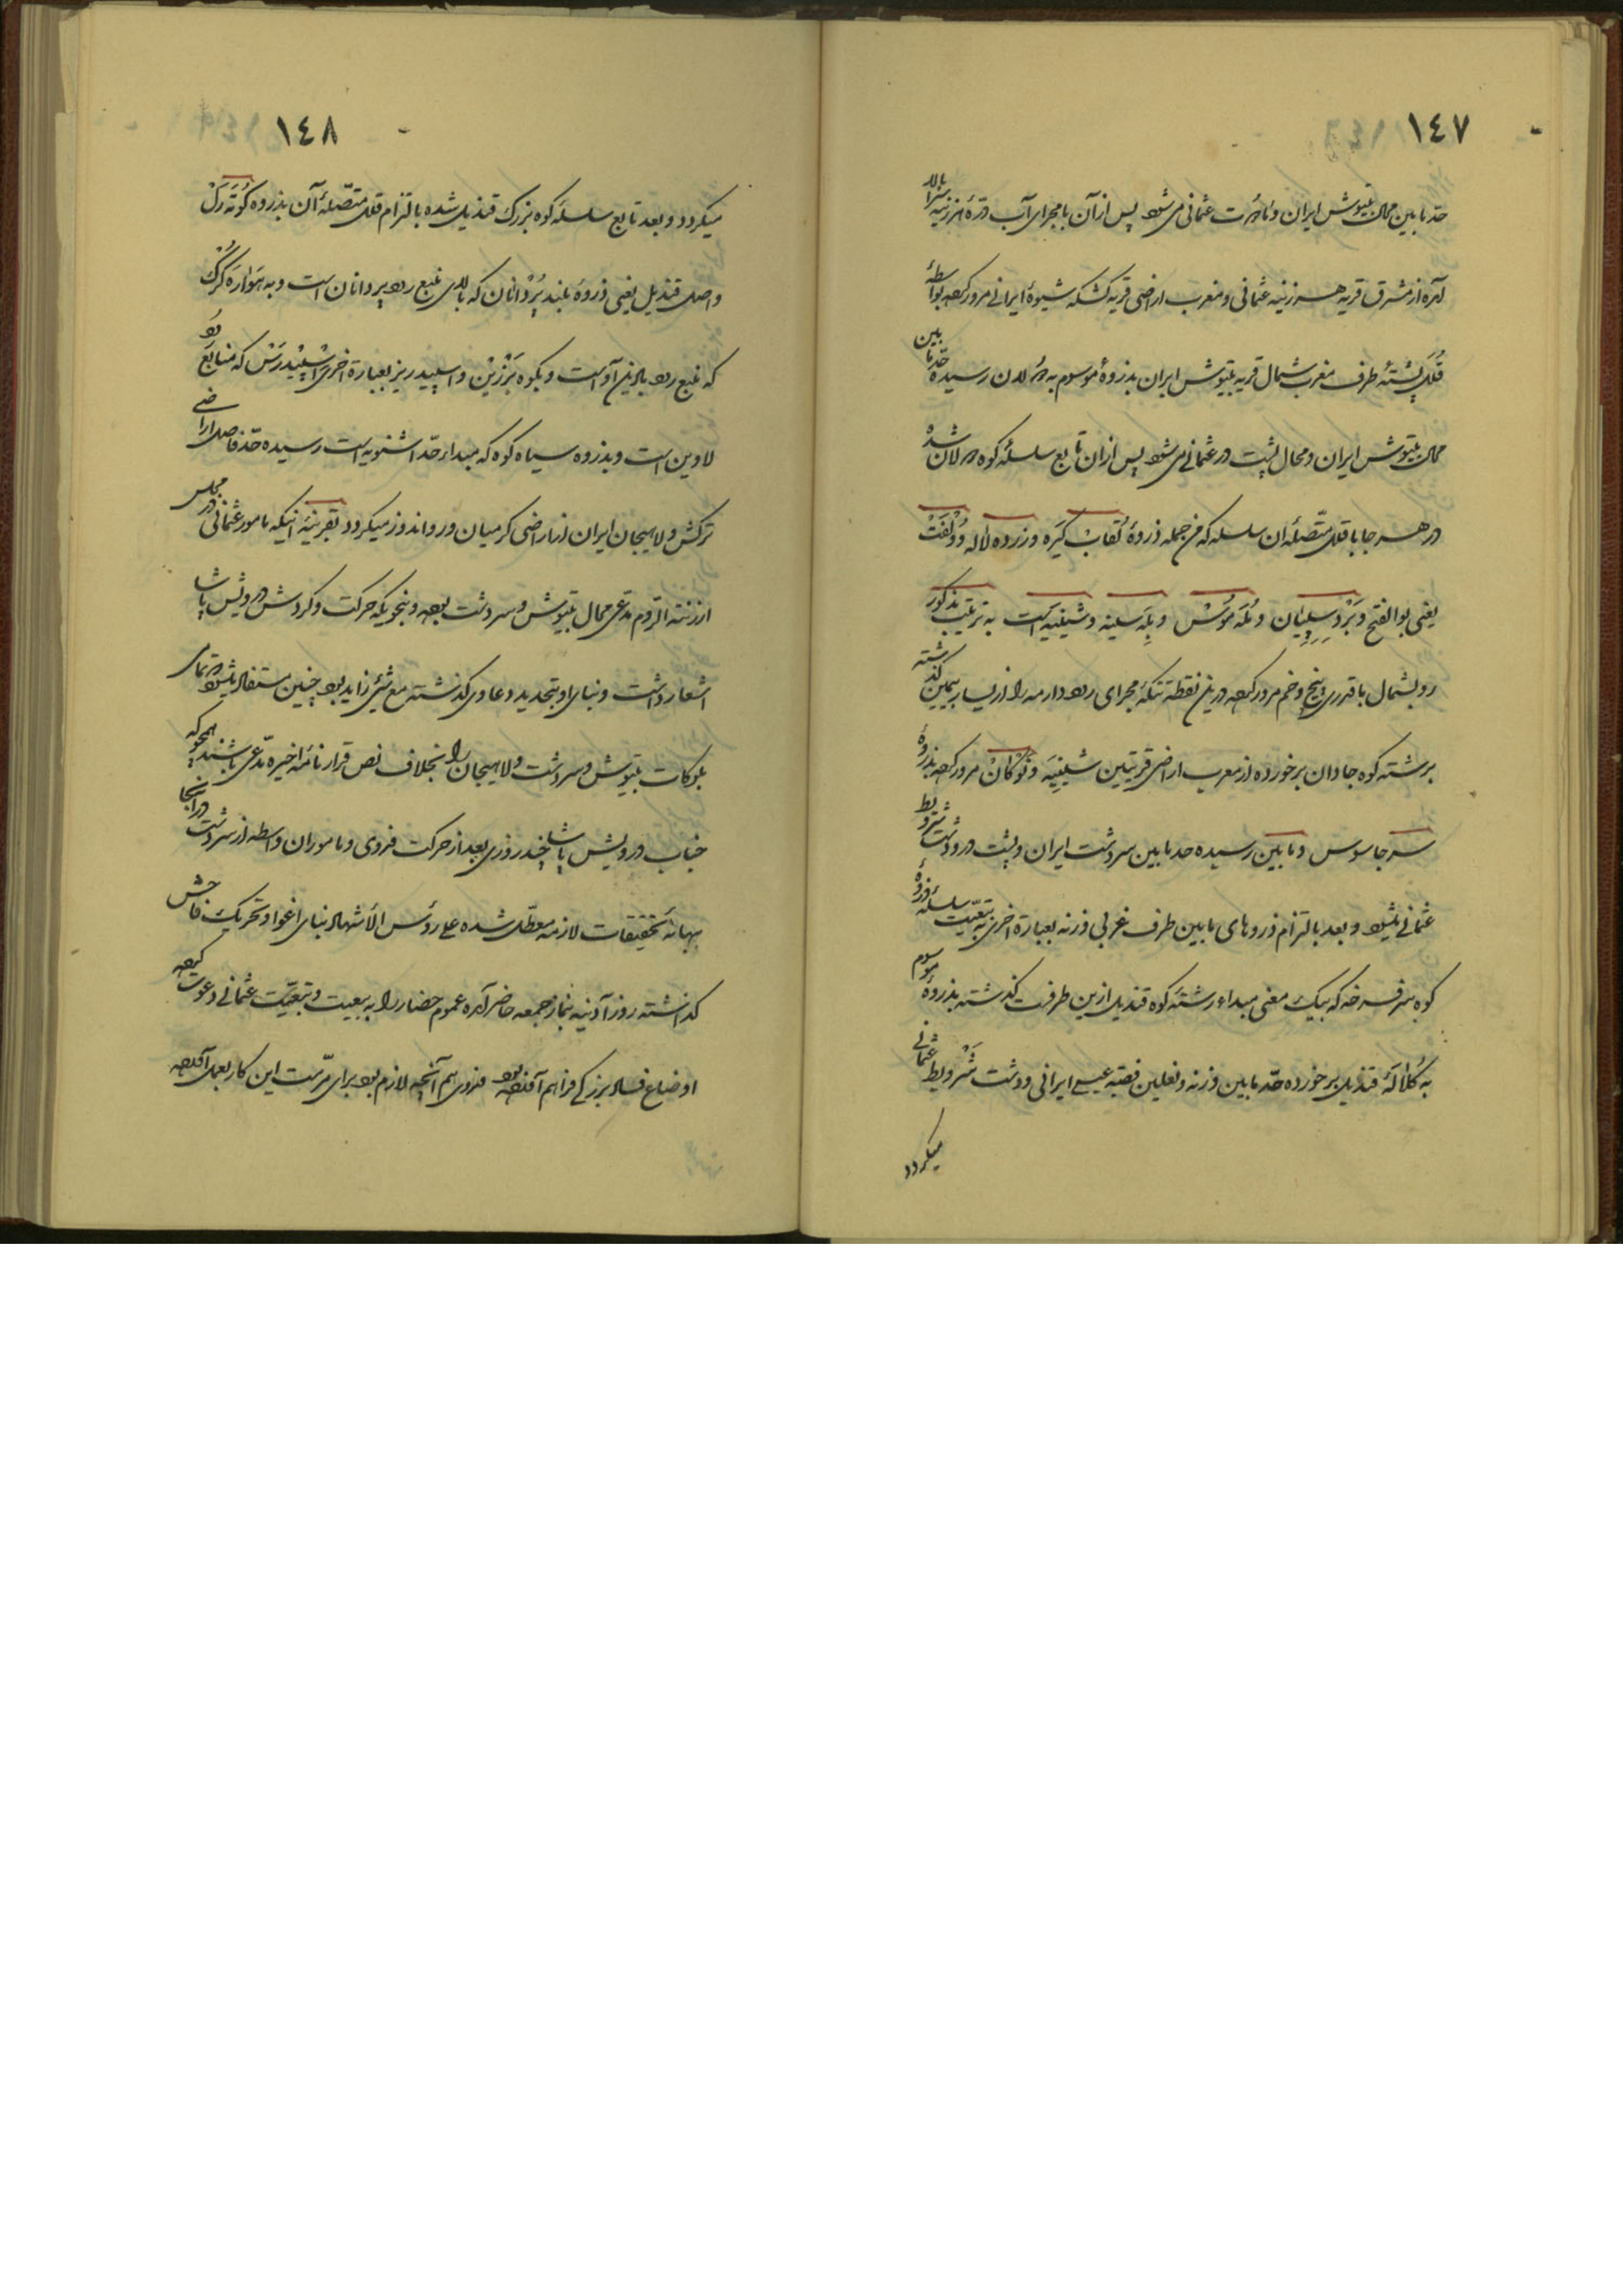 ١٤٧
حد ما بین محال بیتوش ایران و ماوت عثمانی می‌شود پس از آن با مجرای آب دره هرزنیه سر بالا
آمده از مشرق قریه هرزنیه عثمانی و مغرب اراضی قریه کشکه شیوهٔ ایرانی مرور کرده بواسطهٔ
قلل پشتهٔ طرف مغرب شمال قریه بیتوش ایران بذروهٔ موسوم به لدن رسیده حد ما بین
محال بیتوش ایران و محال پشت در عثمانی می‌شود پس از آن تابع سلسلهٔ کوه لان شده
در هر جا با قلل متصلهٔ آن سلسله که من جمله ذروهٔ نقاب کیَره و زرده لاله و دولفَت
یعنی بوالفتح و بَرد سپیان و مُله موُس و پله سینه و شینیه است به ترتیب مذکور
رو بشمال با قدری پیچ و خم مرور کرده درین نقطه تنکهٔ مجرای رود دارمه را از یسار بیمین گذشته
برشته کوه جاداران برخورده از مغرب اراضی قریتین شینیه و نوکان مرور کرده بذروهٔ
سر جاسوس و مابین رسیده حد ما بین سردشت ایران و پشت در و دشت شرویط
عثمانی میشود و بعد بالتزام ذروهای ما بین طرف غربی وزنه بعبارة اخری به تبعیت سلسلهٔ ذروهٔ
کوه سرفرخه که بیک معنی مبداء رشتهٔ کوه قندیل ازین طرفست گذشته بذروهٔ موسوم
به کلاله قندیل برخورده حد ما بین وزنه و نعلین فقیه عیسی ایرانی و دشت شرویط عثمانی
میگردد
١٤٨
میگردد و بعد تابع سلسلهٔ کوه بزرگ قندیل شده بالتزام قلل متصلهٔ آن بذروه کوُته رَک
واصل قندیل یعنی ذروهٔ بلند بُردانان که بالای نبع رود پردانان است و به هَوارَه گرگ
که نبع رود بالین آو است و بکوه بَرزین و اسپید ریز بعبارة اخری اسپیدرَش که منابع رود
لاوین است و بذروه سیاه کوه که مبداء حد اشنویه است رسیده حد فاصل اراضی
ترکش و لاهیجان ایران از اراضی کرمیان و رواندوز میگردد بقرینهٔ اینکه مامور عثمانی در مجلس
ارزنة الروم مدعی محال بیتوش و سردشت بوده و بنحویکه حرکت و گردش درویش پاشا
اشعار داشت و بنای او بتجدید دعاوی گذشته مع شیئ زاید بود چنین مستفاد میشود که تمامی
بلوکات بیتوش و سردشت و لاهیجان را بخلاف نص قرارنامهٔ اخیره مدعی باشند همچو که
جناب درویش پاشا چند روزی بعد از حرکت فدوی و ماموران واسطه از سردشت در آنجا
بهانهٔ تحقیقات لازمه معطل شده علی روئس الأشهاد بنای اغوا و تحریک فاحش
گذاشته روز آدینه بنماز جمعه حاضر آمده عموم حضار را به بیعت و تبعیت عثمانی دعوت کرده
اوضاع فساد بزرگی فراهم آورده بود فدوی هم آنچه لازم بود برای مرمت این کار بعمل آورده